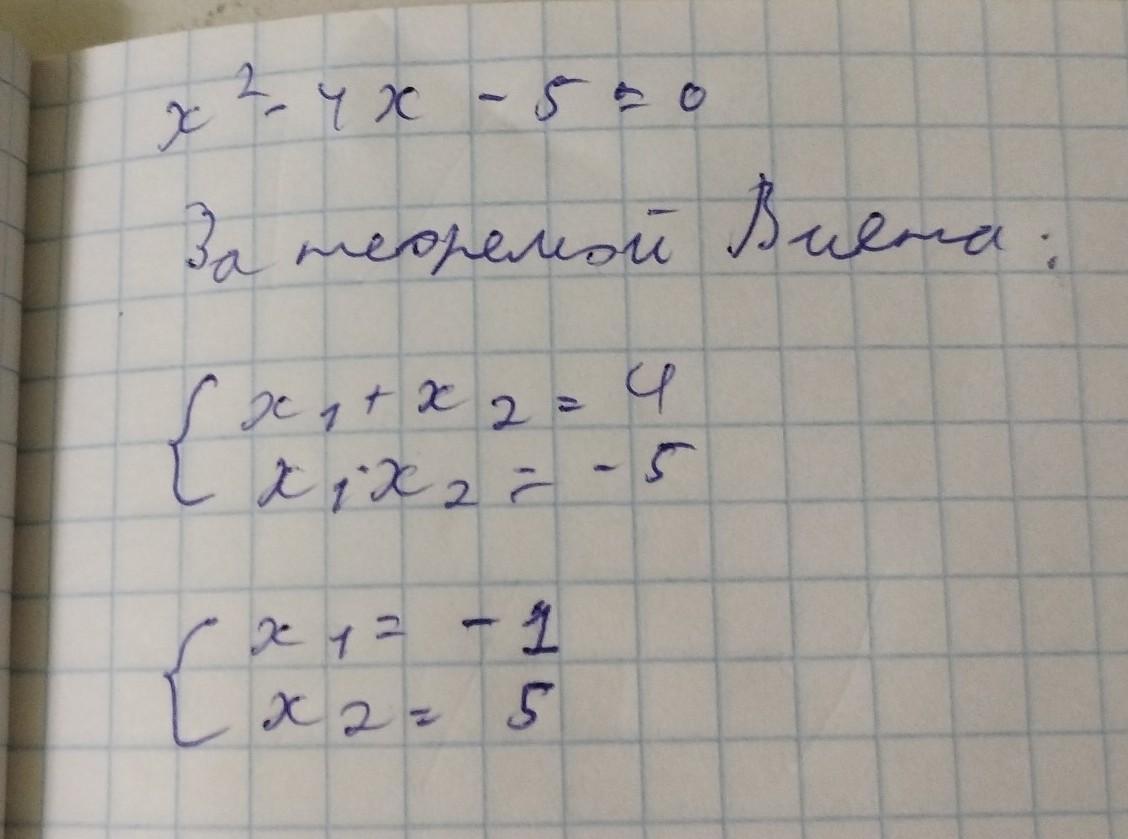 x² - 4x - 5 = 0
За теоремой Виета:
{ x₁ + x₂ = 4
x₁ · x₂ = - 5
{ x₁ = - 1
x₂ = 5